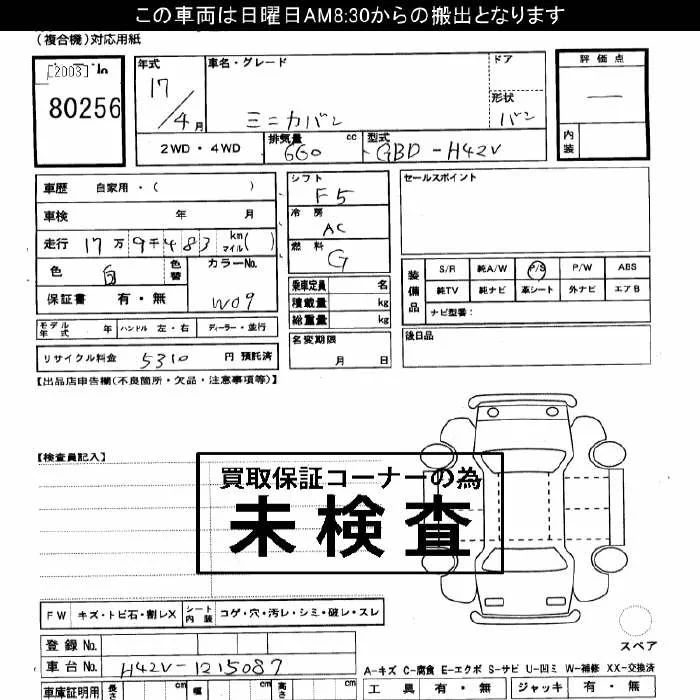 この車両は日曜日AM8:30からの搬出となります
(複合機)対応用紙
[2003] No
80256
年式
17/4月
車名・グレード
ミニカバン
ドア
形状
バン
評価点
—
内装
2WD・4WD
排気量 660 cc
型式 GBD-H42V
車歴 自家用・( )
車検 年 月
走行 17万9千483 km マイル( )
色 白 色替
カラーNo. W09
保証書 有・無
モデル年式 年 ハンドル 左・右 ディーラー・並行
リサイクル料金 5310 円 預託済
シフト F5
冷房 AC
燃料 G
乗車定員 名
積載量 kg
総重量 kg
名変期限
月 日
セールスポイント
装備品
S/R 純A/W P/S P/W ABS
純TV 純ナビ 革シート 外ナビ エアB
ナビ型番:
後日品
【出品店申告欄(不良箇所・欠品・注意事項等)】
【検査員記入】
買取保証コーナーの為
未検査
FW キズ・トビ石・割レX シート内装 コゲ・穴・汚レ・シミ・破レ・スレ
登録No.
車台No. H42V-1215087
車庫証明用 長さ cm 幅 cm 高さ cm
スペア
A-キズ C-腐食 E-エクボ S-サビ U-凹ミ W-補修 XX-交換済
工具 有・無 ジャッキ 有・無